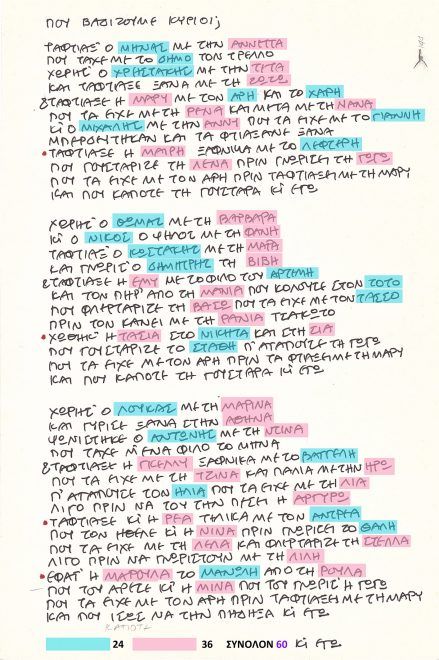 ΠΟΥ ΒΑΔΙΖΟΥΜΕ ΚΥΡΙΟΙ;
ΤΑΦΤΙΑΞ' Ο ΜΗΝΑΣ ΜΕ ΤΗΝ ΑΝΝΕΤΤΑ
ΠΟΥ ΤΑΧΕ ΜΕ ΤΟ ΔΗΜΟ ΤΟΝ ΤΡΕΛΛΟ
ΧΩΡΙΣ' Ο ΧΡΗΣΤΑΚΗΣ ΜΕ ΤΗΝ ΤΕΤΑ
ΚΑΙ ΤΑΦΤΙΑΞΕ ΞΑΝΑ ΜΕ ΤΗ ΖΩΖΩ
& ΤΑΦΤΙΑΞΕ Η ΜΑΡΥ ΜΕ ΤΟΝ ΑΡΗ ΚΑΙ ΤΟ ΧΑΡΗ
ΠΟΥ ΤΑ ΕΙΧΕ ΜΕ ΤΗ ΡΕΝΙΑ ΚΑΙ ΜΕΤΑ ΜΕ ΤΗ ΝΑΝΑ
ΚΙ Ο ΜΙΧΑΛΗΣ ΜΕ ΤΗΝ ΑΝΝΥ ΠΟΥ ΤΑ ΕΙΧΕ ΜΕ ΤΟ ΓΙΑΝΝΗ
ΜΠΕΡΔΕΥΤΗΚΑΝ ΚΑΙ ΤΑ ΦΤΙΑΞΑΝΕ ΞΑΝΑ
• ΤΑΦΤΙΑΞΕ Η ΜΑΙΡΗ ΞΑΦΝΙΚΑ ΜΕ ΤΟ ΛΕΦΤΕΡΗ
ΠΟΥ ΓΟΥΣΤΑΡΙΖΕ ΤΗ ΛΕΝΑ ΠΡΙΝ ΓΝΩΡΙΣΕΙ ΤΗ ΓΩΓΩ
ΠΟΥ ΤΑ ΕΙΧΕ ΜΕ ΤΟΝ ΑΡΗ ΠΡΙΝ ΤΑΦΤΙΑΞΕΙ ΜΕ ΤΗ ΜΑΡΥ
ΚΑΙ ΠΟΥ ΚΑΠΟΤΕ ΤΗ ΓΟΥΣΤΑΡΑ ΚΙ ΕΓΩ
ΧΩΡΙΣ' Ο ΘΩΜΑΣ ΜΕ ΤΗ ΒΑΡΒΑΡΑ
ΚΙ Ο ΝΙΚΟΣ Ο ΨΗΛΟΣ ΜΕ ΤΗ ΦΑΝΗ
ΤΑΦΤΙΑΞ' Ο ΚΩΣΤΑΚΗΣ ΜΕ ΤΗ ΜΑΡΑ
ΚΑΙ ΓΝΩΡΙΣ' Ο ΔΗΜΗΤΡΗΣ ΤΗ ΒΙΒΗ
& ΤΑΦΤΙΑΞΕ Η ΕΜΥ ΜΕ ΤΟ ΦΙΛΟ ΤΟΥ ΑΡΤΕΜΗ
ΚΑΙ ΤΟΝ ΠΗΡ' ΑΠΟ ΤΗ ΜΑΝΙΑ ΠΟΥ ΚΟΛΟΥΣΕ ΣΤΟΝ ΤΟΤΟ
ΠΟΥ ΦΛΕΡΤΑΡΙΖΕ ΤΗ ΒΑΣΩ ΠΟΥ ΤΑ ΕΙΧΕ ΜΕ ΤΟΝ ΤΑΣΣΟ
ΠΡΙΝ ΤΟΝ ΚΑΝΕΙ ΜΕ ΤΗ ΡΑΝΙΑ ΤΣΑΚΩΤΟ
• ΧΩΘΗΚ' Η ΤΑΣΙΑ ΣΤΟ ΝΙΚΗΤΑ ΚΑΙ ΣΤΗ ΣΙΑ
ΠΟΥ ΓΟΥΣΤΑΡΙΖΕ ΤΟ ΣΤΑΘΗ Π' ΑΓΑΠΟΥΣΕ ΤΗ ΓΩΓΩ
ΠΟΥ ΤΑ ΕΙΧΕ ΜΕ ΤΟΝ ΑΡΗ ΠΡΙΝ ΤΑ ΦΤΙΑΞΕΙ ΜΕ ΤΗ ΜΑΡΥ
ΚΑΙ ΠΟΥ ΚΑΠΟΤΕ ΤΗ ΓΟΥΣΤΑΡΑ ΚΙ ΕΓΩ
ΧΩΡΙΣ' Ο ΛΟΥΚΑΣ ΜΕ ΤΗ ΜΑΡΙΝΑ
ΚΑΙ ΓΥΡΙΣΕ ΞΑΝΑ ΣΤΗΝ ΑΘΗΝΑ
ΨΩΝΙΣΤΗΚΕ Ο ΑΝΤΩΝΗΣ ΜΕ ΤΗ ΝΤΙΝΑ
ΠΟΥ ΤΑΧΕ Μ' ΕΝΑ ΦΙΛΟ ΤΟ ΜΗΝΑ
& ΤΑΦΤΙΑΞΕ Η ΓΚΕΛΛΥ ΞΑΦΝΙΚΑ ΜΕ ΤΟ ΒΑΓΓΕΛΗ
ΠΟΥ ΤΑ ΕΙΧΕ ΜΕ ΤΗ ΤΖΙΝΑ ΚΑΙ ΠΑΛΙΑ ΜΕ ΤΗΝ ΗΡΩ
Π' ΑΓΑΠΟΥΣΕ ΤΟΝ ΗΛΙΑ ΠΟΥ ΤΑ ΕΙΧΕ ΜΕ ΤΗ ΛΙΑ
ΛΙΓΟ ΠΡΙΝ ΝΑ ΤΟΥ ΤΗΝ ΠΕΣΕΙ Η ΑΡΓΥΡΩ
• ΤΑΦΤΙΑΞΕ ΚΙ Η ΡΕΑ ΤΕΛΙΚΑ ΜΕ ΤΟΝ ΑΝΤΡΕΑ
ΠΟΥ ΤΟΝ ΗΘΕΛΕ ΚΙ Η ΝΙΝΑ ΠΡΙΝ ΓΝΩΡΙΣΕΙ ΤΟ ΘΑΛΗ
ΠΟΥ ΤΑ ΕΙΧΕ ΜΕ ΤΗ ΛΕΛΑ ΚΑΙ ΦΛΕΡΤΑΡΙΖΕ ΤΗ ΣΤΕΛΛΑ
ΛΙΓΟ ΠΡΙΝ ΝΑ ΓΝΩΡΙΣΤΟΥΝ ΜΕ ΤΗ ΛΙΛΗ
• ΕΦΑΓ' Η ΜΑΡΟΥΛΑ ΤΟ ΜΑΝΩΛΗ ΑΠΟ ΤΗ ΡΟΥΛΑ
ΠΟΥ ΤΟΥ ΑΡΕΣΕ ΚΙ Η ΜΙΝΑ ΠΟΥ ΤΟΥ ΓΝΩΡΙΣ' Η ΓΩΓΩ
ΠΟΥ ΤΑ ΕΙΧΕ ΜΕ ΤΟΝ ΑΡΗ ΠΡΙΝ ΤΑΦΤΙΑΞΕΙ ΜΕ ΤΗ ΜΑΡΥ
ΚΑΙ ΠΟΥ ΙΣΩΣ ΝΑ ΤΗΝ ΠΗΔΗΞΑ ΚΙ ΕΓΩ
ΚΑΠΟΤΕ
24 36 ΣΥΝΟΛΟΝ 60 ΚΙ ΕΓΩ